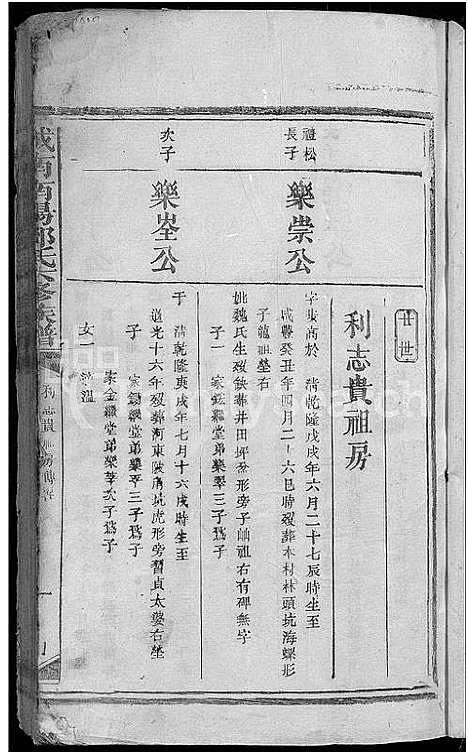 廿世
利志貴祖房
禮松
長子
樂崇公
字東高於 清乾隆戊戌年六月二十七辰時生至
咸豐癸丑年四月二十六巳時歿葬本村林頭坑海螺形
子龍祖塋右
姚魏氏生歿缺葬井田坪岔形旁子岫祖右有碑無字
子一 家鉉繼堂弟樂翠三子爲子
次子
樂峑公
于 清乾隆庚戌年七月十六戌時生至
道光十六年歿葬河東陂膚坑虎形旁習貞太婆右塋
子 家鍚繼堂弟樂翠三子爲子
家金繼堂弟樂 次子爲子
女一
南陽 氏六修族譜
利志貴祖房